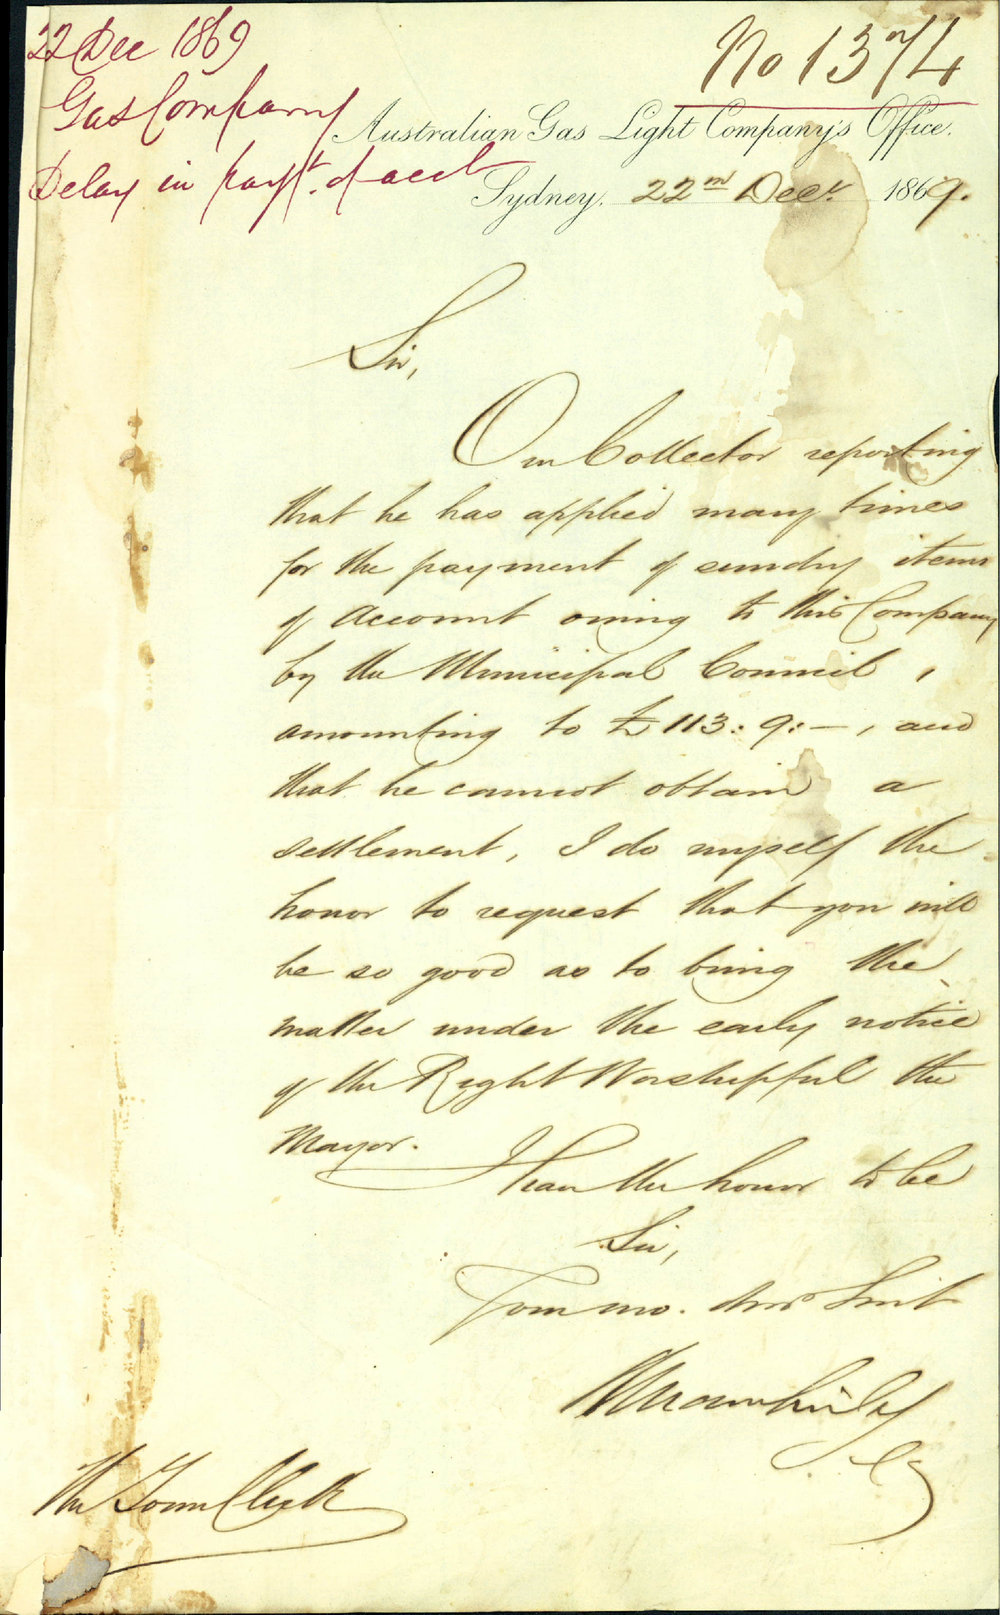 22 Dec 1869
Gas Company
Delay in paytt. of acct
No 1374
Australian Gas Light Company's Office.
Sydney. 22nd Decr. 1869.
Sir,
Our Collector reporting
that he has applied many times
for the payment of sundry items
of account owing to this Company
by the Municipal Council,
amounting to £113: 9: —, and
that he cannot obtain a
settlement, I do myself the
honor to request that you will
be so good as to bring the
matter under the early notice
of the Right Worshipful the
Mayor.
I have the honor to be
Sir,
Your mo. obed Servt
Secy
The Town Clerk